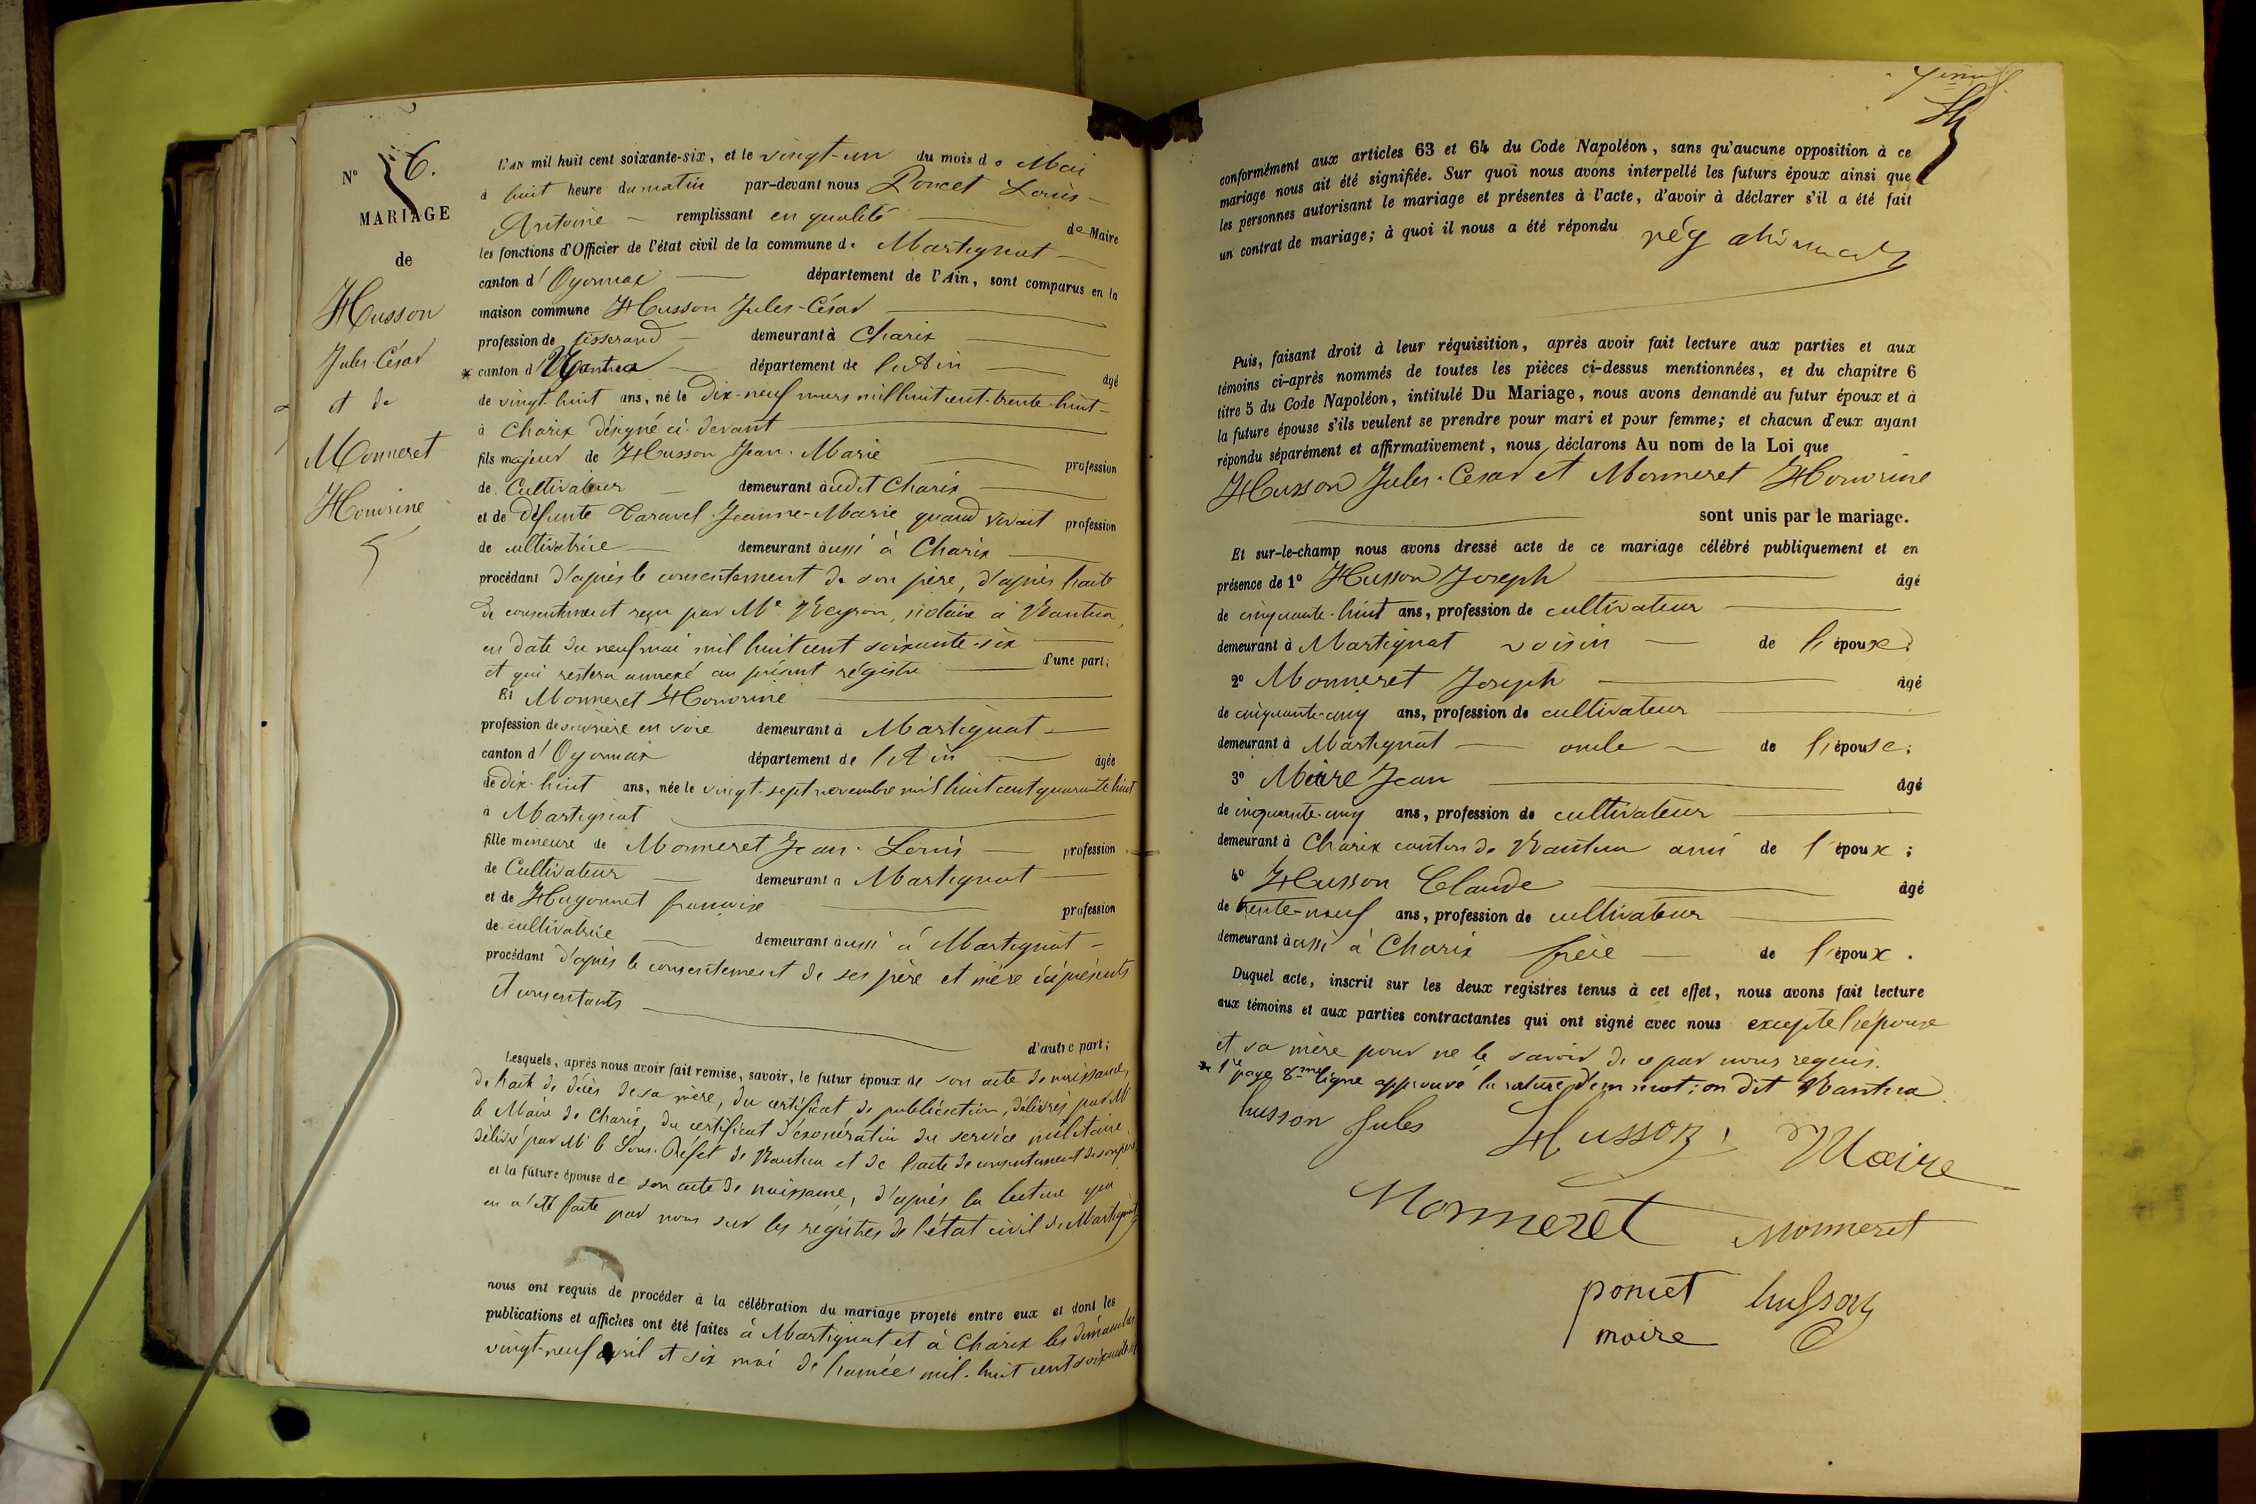 N° 6.
MARIAGE
de
Husson
Jules César
et de
Monneret
Honorine
L'AN mil huit cent soixante-six, et le vingt-un du mois de Mai
à huit heure du matin par-devant nous Poncet Louis-
Antoine remplissant en qualité de Maire
les fonctions d'Officier de l'état civil de la commune de Martignat
canton d'Oyonnax département de l'Ain, sont comparus en la
maison commune Husson Jules-César
profession de tisserand demeurant à Charix
* canton d Nantua département de l'Ain âgé
de vingt-huit ans, né le dix-neuf mars mil huit cent-trente-huit
à Charix désigné ci-devant
fils majeur de Husson Jean-Marie profession
de Cultivateur demeurant audit Charix
et de défunte Caravel Jeanne-Marie quand vivait profession
de cultivatrice demeurant aussi à Charix
procédant d'après le consentement de son père, d'après l'acte
de consentement reçu par Me notaire à Nantua,
en date du neuf mai mil huit cent soixante-six
et qui restera annexé au présent régistre d'une part;
Et Monneret Honorine
profession de ouvrière en soie demeurant à Martignat
canton d'Oyonnax département de l'Ain âgée
de dix-huit ans, née le vingt-sept novembre mil huit cent quarante huit
à Martignat
fille mineure de Monneret Jean-Louis profession
de Cultivateur demeurant à Martignat
et de Hugonnet françoise profession
de cultivatrice demeurant aussi à Martignat
procédant d'après le consentement de ses père et mère ici présents
et consentants
d'autre part;
Lesquels, après nous avoir fait remise, savoir, le futur époux de son acte de naissance,
de l'acte de décès de sa mère, du certificat de publication, délivrés par Mr
le Maire de Charix, du certificat d'exonération du service militaire
délivré par Mr le Sous-Préfet de Nantua et de l'acte de consentement de son père,
et la future épouse de son acte de naissance, d'après la lecture qui
en a été faite par nous sur les registres de l'état civil de Martignat
nous ont requis de procéder à la célébration du mariage projeté entre eux et dont les
publications et affiches ont été faites à Martignat et à Charix les dimanches
vingt-neuf avril et six mai de l'année mil-huit cent soixante six
conformément aux articles 63 et 64 du Code Napoléon, sans qu'aucune opposition à ce
mariage nous ait été signifiée. Sur quoi nous avons interpellé les futurs époux ainsi que
les personnes autorisant le mariage et présentes à l'acte, d'avoir à déclarer s'il a été fait
un contrat de mariage; à quoi il nous a été répondu négativement
Puis, faisant droit à leur réquisition, après avoir fait lecture aux parties et aux
témoins ci-après nommés de toutes les pièces ci-dessus mentionnées, et du chapitre 6
titre 5 du Code Napoléon, intitulé Du Mariage, nous avons demandé au futur époux et à
la future épouse s'ils veulent se prendre pour mari et pour femme; et chacun d'eux ayant
répondu séparément et affirmativement, nous déclarons Au nom de la Loi que
Husson Jules-César et Monneret Honorine
sont unis par le mariage.
Et sur-le-champ nous avons dressé acte de ce mariage célébré publiquement et en
présence de 1° Husson Joseph âgé
de cinquante-huit ans, profession de cultivateur
demeurant à Martignat voisin de l'époux;
2° Monneret Joseph âgé
de cinquante-cinq ans, profession de cultivateur
demeurant à Martignat oncle de l'épouse;
3° Maire Jean âgé
de cinquante-cinq ans, profession de cultivateur
demeurant à Charix canton de Nantua ami de l'époux;
4° Husson Claude âgé
de trente-neuf ans, profession de cultivateur
demeurant aussi à Charix frère de l'époux.
Duquel acte, inscrit sur les deux registres tenus à cet effet, nous avons fait lecture
aux témoins et aux parties contractantes qui ont signé avec nous excepté l'épouse
et sa mère pour ne le savoir de ce par nous requis.
* 1re page 8me ligne approuvé la rature d'un mot: on dit Nantua
husson Jules Husson Maire
Monneret Monneret
poncet husson
maire